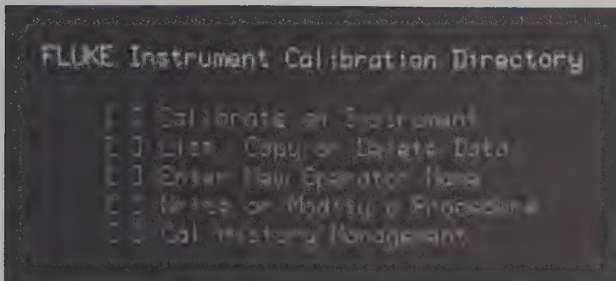 FLUKE Instrument Calibration Directory
[ ] Calibrate an Instrument
[ ] List, Copy or Delete Data
[ ] Enter New Operator Name
[ ] Write or Modify a Procedure
[ ] Cal History Management